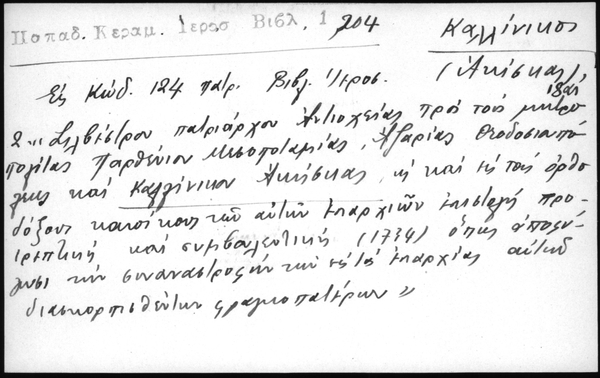 Παπαδ. Κεραμ. Ιεροσ Βιβλ. 1 204
Καλλίνικος
(Ἀκίσκας),
18αι
Εἰς Κώδ. 124 πατρ. Βιβλ. Ἱεροσ.
"Σιλβέστρου πατριάρχου Ἀντιοχείας πρὸς τοὺς μητρο
πολίτας Παρθένιον Μεσοποταμίας, Ἀζαρίας Θεοδοσιουπό
λεως καὶ Καλλίνικον Ἀκίσκας, καὶ εἰς τοὺς ὀρθο
δόξους κατοίκους τῶν αὐτῶν ἐπαρχιῶν ἐπιστολὴ προ
τρεπτικὴ καὶ συμβουλευτικὴ (1734) ὅπως ἀποφύ
γωσι τὴν συναναστροφὴν τῶν εἰς τὰς ἐπαρχίας αὐτῶν
διασκορπισθέντων φραγκοπατέρων"